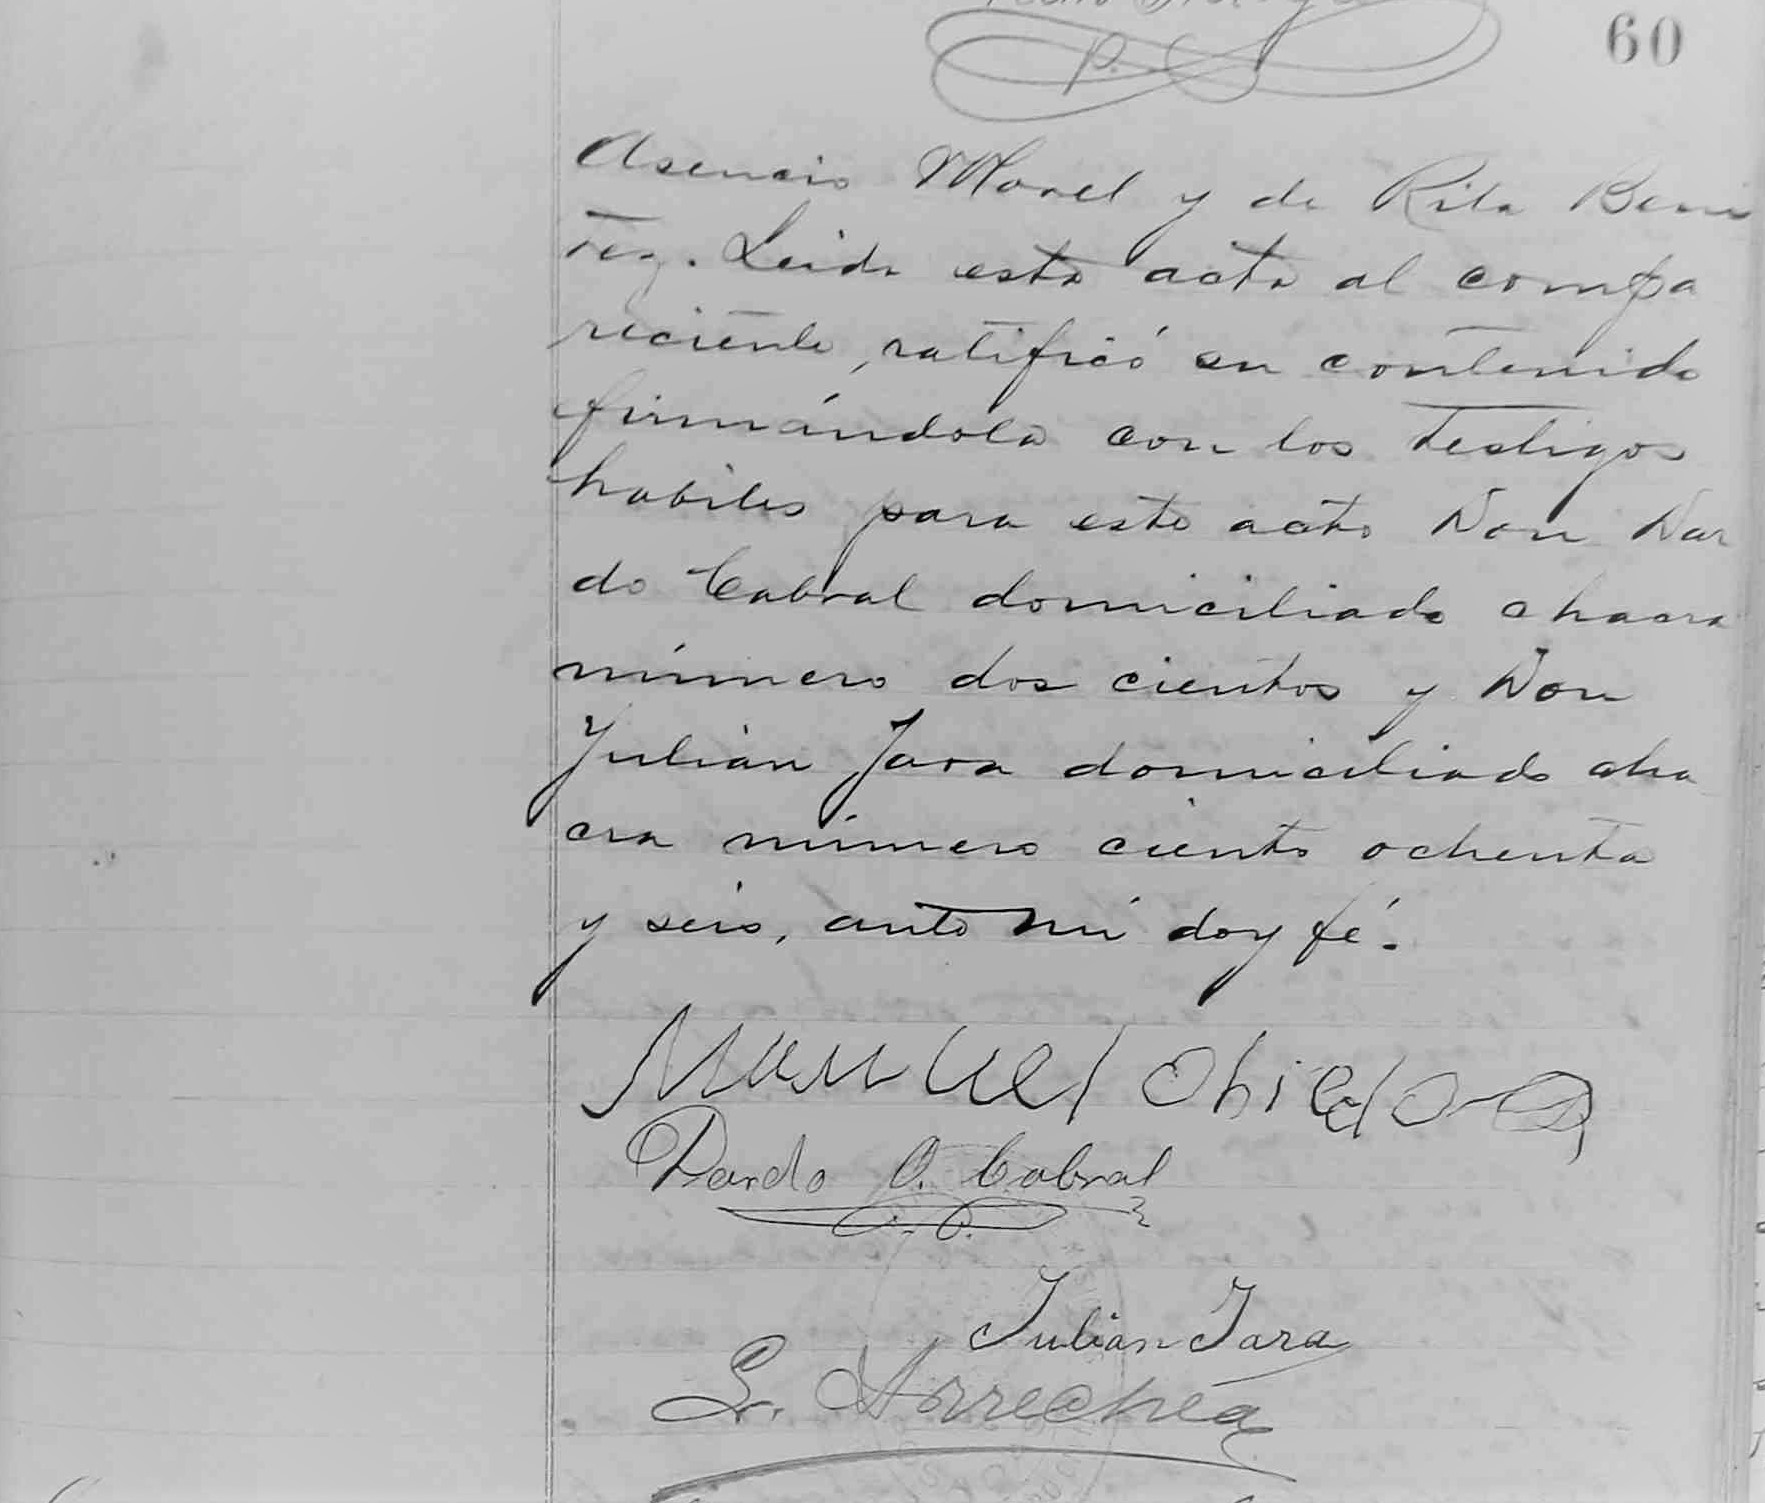 60
P.
Asencio Morel y de Rita Beni
tez. Leida esta acta al compa
reciente, ratificó su contenido
firmándola con los testigos
habiles para este acto Don Dar
do Cabral domiciliado chacra
número dos cientos y Don
Julian Jara domiciliado cha
cra número ciento ochenta
y seis, ante mi doy fé.
Manuel Obiedo
Dardo O. Cabral
Julian Jara
L. Arrechea